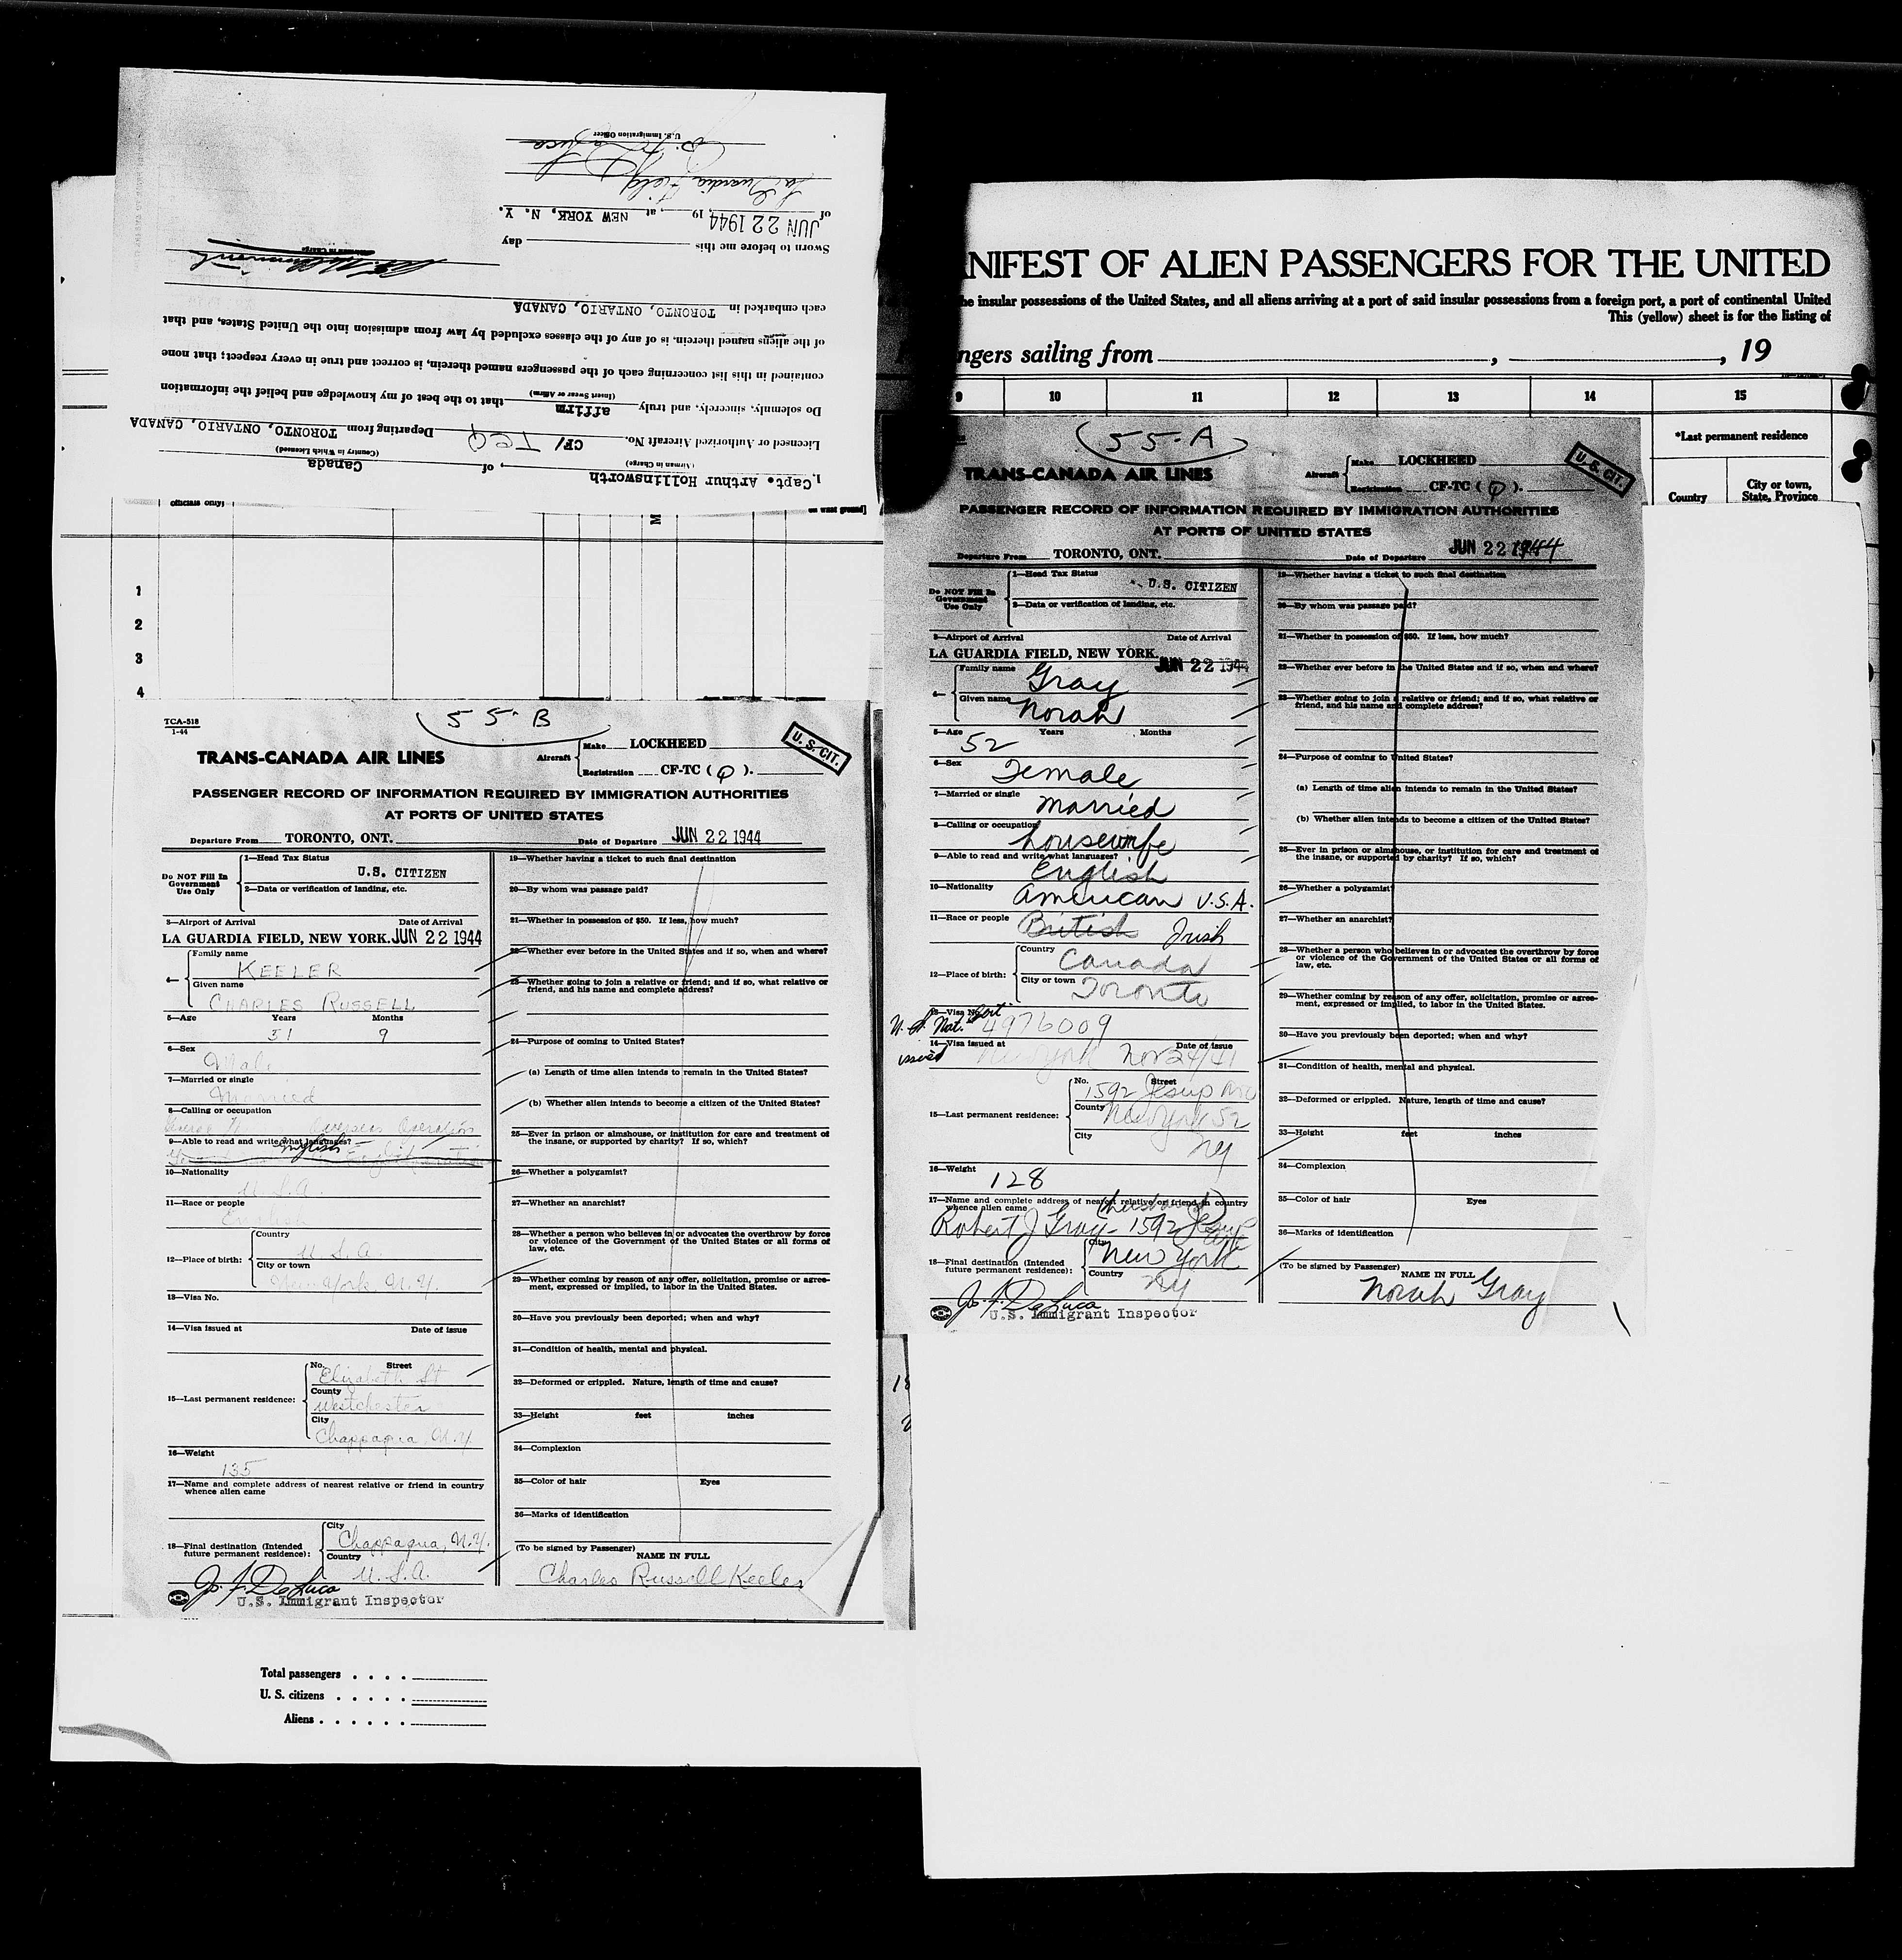 I, Capt. Arthur Hollinsworth, of Canada
(Airman in Charge) (Country in Which Licensed)
Licensed or Authorized Aircraft No. CF/ TCQ Departing from TORONTO, ONTARIO, CANADA
Do solemnly, sincerely, and truly affirm that to the best of my knowledge and belief the information
(Insert Swear or Affirm)
contained in this list concerning each of the passengers named therein, is correct and true in every respect; that none
of the aliens named therein, is of any of the classes excluded by law from admission into the United States, and that
each embarked in TORONTO, ONTARIO, CANADA
Sworn to before me this day
of JUN 22 1944, 19 , at NEW YORK, N. Y.
La Guardia Field
U.S. Immigration Officer
officials only]
M
1
2
3
4
TCA-518
1-44
55-B
TRANS-CANADA AIR LINES
Aircraft Make LOCKHEED
Registration CF-TC (Q).
U. S. CIT.
PASSENGER RECORD OF INFORMATION REQUIRED BY IMMIGRATION AUTHORITIES
AT PORTS OF UNITED STATES
Departure From TORONTO, ONT. Date of Departure JUN 22 1944
Do NOT Fill In Government Use Only
1—Head Tax Status
U.S. CITIZEN
2—Data or verification of landing, etc.
3—Airport of Arrival Date of Arrival
LA GUARDIA FIELD, NEW YORK. JUN 22 1944
4— Family name
KEELER
Given name
CHARLES RUSSELL
5—Age Years Months
31 9
6—Sex
Male
7—Married or single
Married
8—Calling or occupation
Overseas Operation
9—Able to read and write what languages?
English
10—Nationality
U.S.A.
11—Race or people
English
12—Place of birth: Country
U.S.A.
City or town
New York N.Y.
13—Visa No.
14—Visa issued at Date of issue
15—Last permanent residence: No. Street
Elizabeth St
County
Westchester
City
Chappaqua, N.Y.
16—Weight
135
17—Name and complete address of nearest relative or friend in country
whence alien came
18—Final destination (Intended
future permanent residence): City
Chappaqua, N.Y.
Country
U.S.A.
Jo. F. DeLuca
U.S. Immigrant Inspector
19—Whether having a ticket to such final destination
20—By whom was passage paid?
21—Whether in possession of $50. If less, how much?
22—Whether ever before in the United States and if so, when and where?
23—Whether going to join a relative or friend; and if so, what relative or
friend, and his name and complete address?
24—Purpose of coming to United States?
(a) Length of time alien intends to remain in the United States?
(b) Whether alien intends to become a citizen of the United States?
25—Ever in prison or almshouse, or institution for care and treatment of
the insane, or supported by charity? If so, which?
26—Whether a polygamist?
27—Whether an anarchist?
28—Whether a person who believes in or advocates the overthrow by force
or violence of the Government of the United States or all forms of
law, etc.
29—Whether coming by reason of any offer, solicitation, promise or agree-
ment, expressed or implied, to labor in the United States.
30—Have you previously been deported; when and why?
31—Condition of health, mental and physical.
32—Deformed or crippled. Nature, length of time and cause?
33—Height feet inches
34—Complexion
35—Color of hair Eyes
36—Marks of identification
(To be signed by Passenger)
NAME IN FULL
Charles Russell Keeler
Total passengers
U. S. citizens
Aliens
NIFEST OF ALIEN PASSENGERS FOR THE UNITED
he insular possessions of the United States, and all aliens arriving at a port of said insular possessions from a foreign port, a port of continental United
This (yellow) sheet is for the listing of
ngers sailing from , , 19
9 10 11 12 13 14 15
*Last permanent residence
Country
City or town,
State, Province
55-A
TRANS-CANADA AIR LINES
Aircraft Make LOCKHEED
Registration CF-TC (Q).
U. S. CIT.
PASSENGER RECORD OF INFORMATION REQUIRED BY IMMIGRATION AUTHORITIES
AT PORTS OF UNITED STATES
Departure From TORONTO, ONT. Date of Departure JUN 22 1944
Do NOT Fill In Government Use Only
1—Head Tax Status
U.S. CITIZEN
2—Data or verification of landing, etc.
3—Airport of Arrival Date of Arrival
LA GUARDIA FIELD, NEW YORK. JUN 22 1944
4— Family name
Gray
Given name
Norah
5—Age Years Months
52
6—Sex
Female
7—Married or single
Married
8—Calling or occupation
housewife
9—Able to read and write what languages?
English
10—Nationality
American U.S.A.
11—Race or people
British Irish
12—Place of birth: Country
Canada
City or town
Toronto
13—Visa No.
U.S. Nat. Cert. 4976009
14—Visa issued at Date of issue
issued New York Nov 24/41
15—Last permanent residence: No. Street
1592 Jesup Ave
County
New York 52
City
NY
16—Weight
128
17—Name and complete address of nearest relative or friend in country
whence alien came (husband)
Robert J Gray - 1592 Jesup Ave
18—Final destination (Intended
future permanent residence): City
New York
Country
NY
Jo. F. DeLuca
U.S. Immigrant Inspector
19—Whether having a ticket to such final destination
20—By whom was passage paid?
21—Whether in possession of $50. If less, how much?
22—Whether ever before in the United States and if so, when and where?
23—Whether going to join a relative or friend; and if so, what relative or
friend, and his name and complete address?
24—Purpose of coming to United States?
(a) Length of time alien intends to remain in the United States?
(b) Whether alien intends to become a citizen of the United States?
25—Ever in prison or almshouse, or institution for care and treatment of
the insane, or supported by charity? If so, which?
26—Whether a polygamist?
27—Whether an anarchist?
28—Whether a person who believes in or advocates the overthrow by force
or violence of the Government of the United States or all forms of
law, etc.
29—Whether coming by reason of any offer, solicitation, promise or agree-
ment, expressed or implied, to labor in the United States.
30—Have you previously been deported; when and why?
31—Condition of health, mental and physical.
32—Deformed or crippled. Nature, length of time and cause?
33—Height feet inches
34—Complexion
35—Color of hair Eyes
36—Marks of identification
(To be signed by Passenger)
NAME IN FULL
Norah Gray